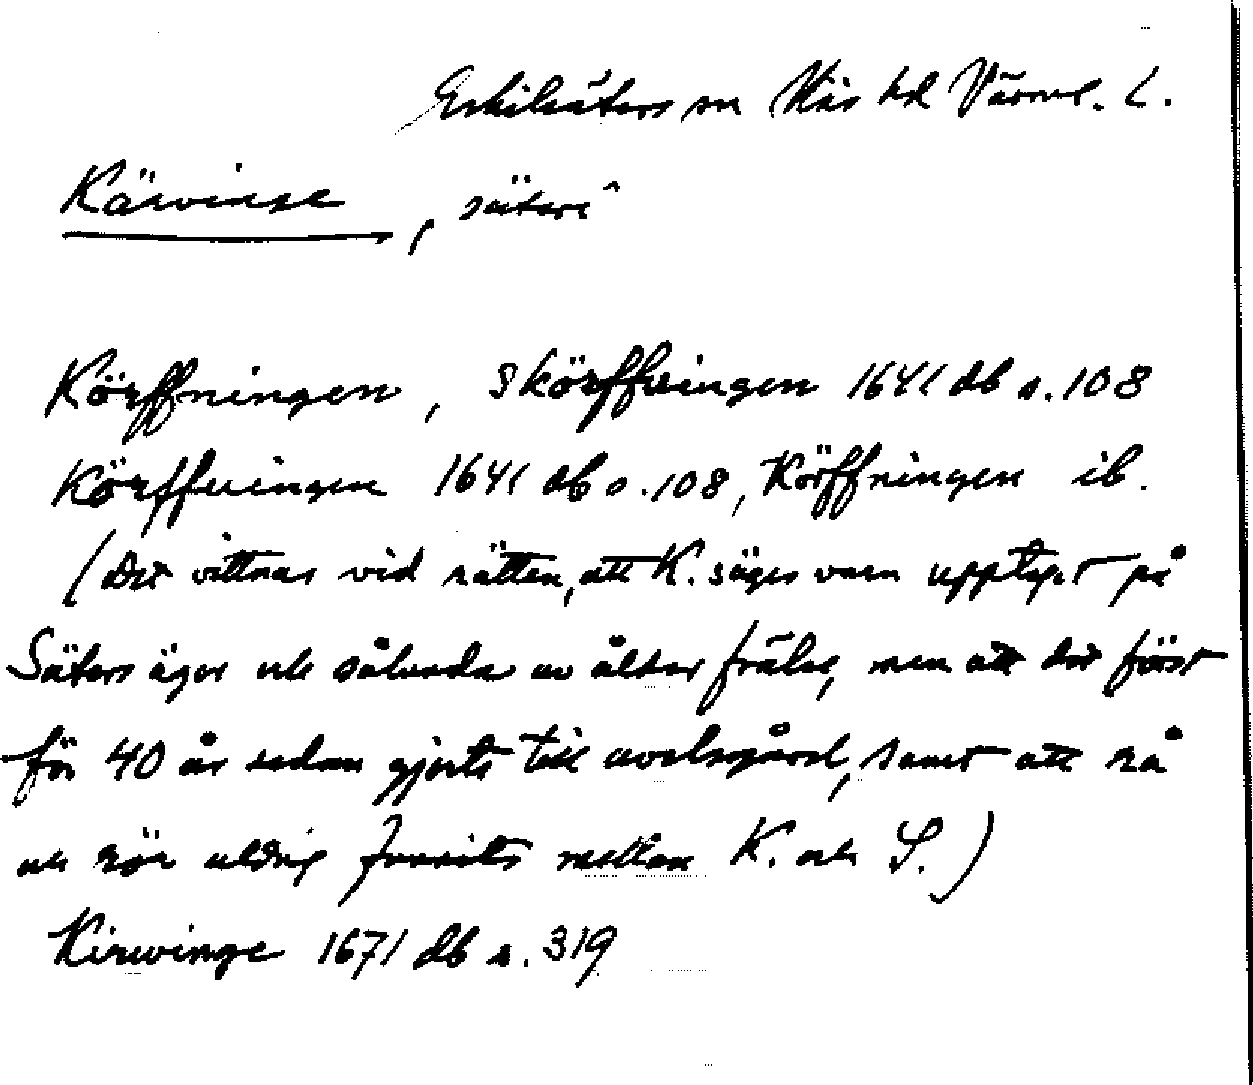 Eskilsäters sn Näs hd Värml. L.
Kärvinge, säteri
Körffningen, Skörffwingen 1641 db s. 108
Körffwingen 1641 db s. 108, Köffningen ib.
(Det vittnas vid rätten, att K. säges vara upptaget på
Säters ägor och således av ålder frälse, men att det först
för 40 år sedan gjorts till avelsgård, samt att rå
och rör aldrig funnits mellan K. och S.)
Kirwinge 1671 db s. 319